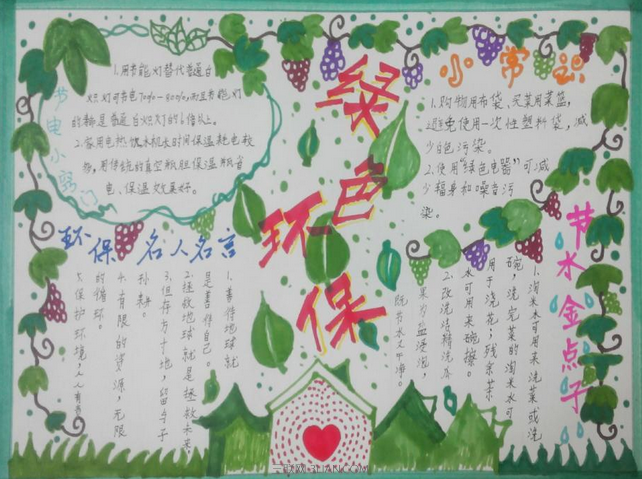 绿色环保
节电小窍门
1.用节能灯替代普通白
炽灯可节电70%-80%,而且节能灯
的寿命是普通白炽灯的6倍以上。
2.家用电热饮水机长时间保温耗电较
多,用传统的真空瓶胆保温瓶省
电、保温效果好。
小常识
1.购物用布袋、买菜用菜篮,
避免使用一次性塑料袋,减
少白色污染。
2.使用“绿色电器”可减
少辐身和噪音污
染。
环保名人名言
1.善待地球就
是善待自己。
2.拯救地球就是拯救未来
3.但存方寸地,留与子
孙耕。
4.有限的资源,无限
的循环。
5.保护环境,人人有责
节水金点子
1.淘米水可用来洗菜或洗
碗,洗完菜的淘米水可
用于浇花;残余茶
水可用来碗擦。
2.改洗洁精洗
果为盐浸泡,
既节水又干净。